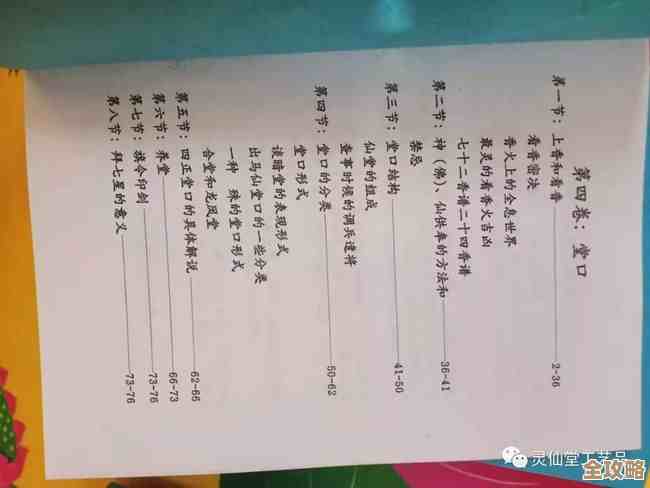 第四卷：堂口
第一节：上香和看香 2-36
看香密决
香火上的全息世界
最灵的看香火吉凶
七十二香谱二十四香谱
第二节：神（佛）、仙供奉的方法和
禁忌 36-41
第三节：堂口结构 41-50
仙堂的组成
查事时候的调兵遣将
第四节：堂口的分类 50-62
堂口形式
谈暗堂的表现形式
出马仙堂口的一些分类
一种 殊的堂口形式
合堂和龙凤堂
第五节：四正堂口的具体解说 62-66
第六节：养堂 66-73
第七节：旗令印剑 73-76
第八节：拜七星的意义 73-76
灵仙堂工艺品
全攻略